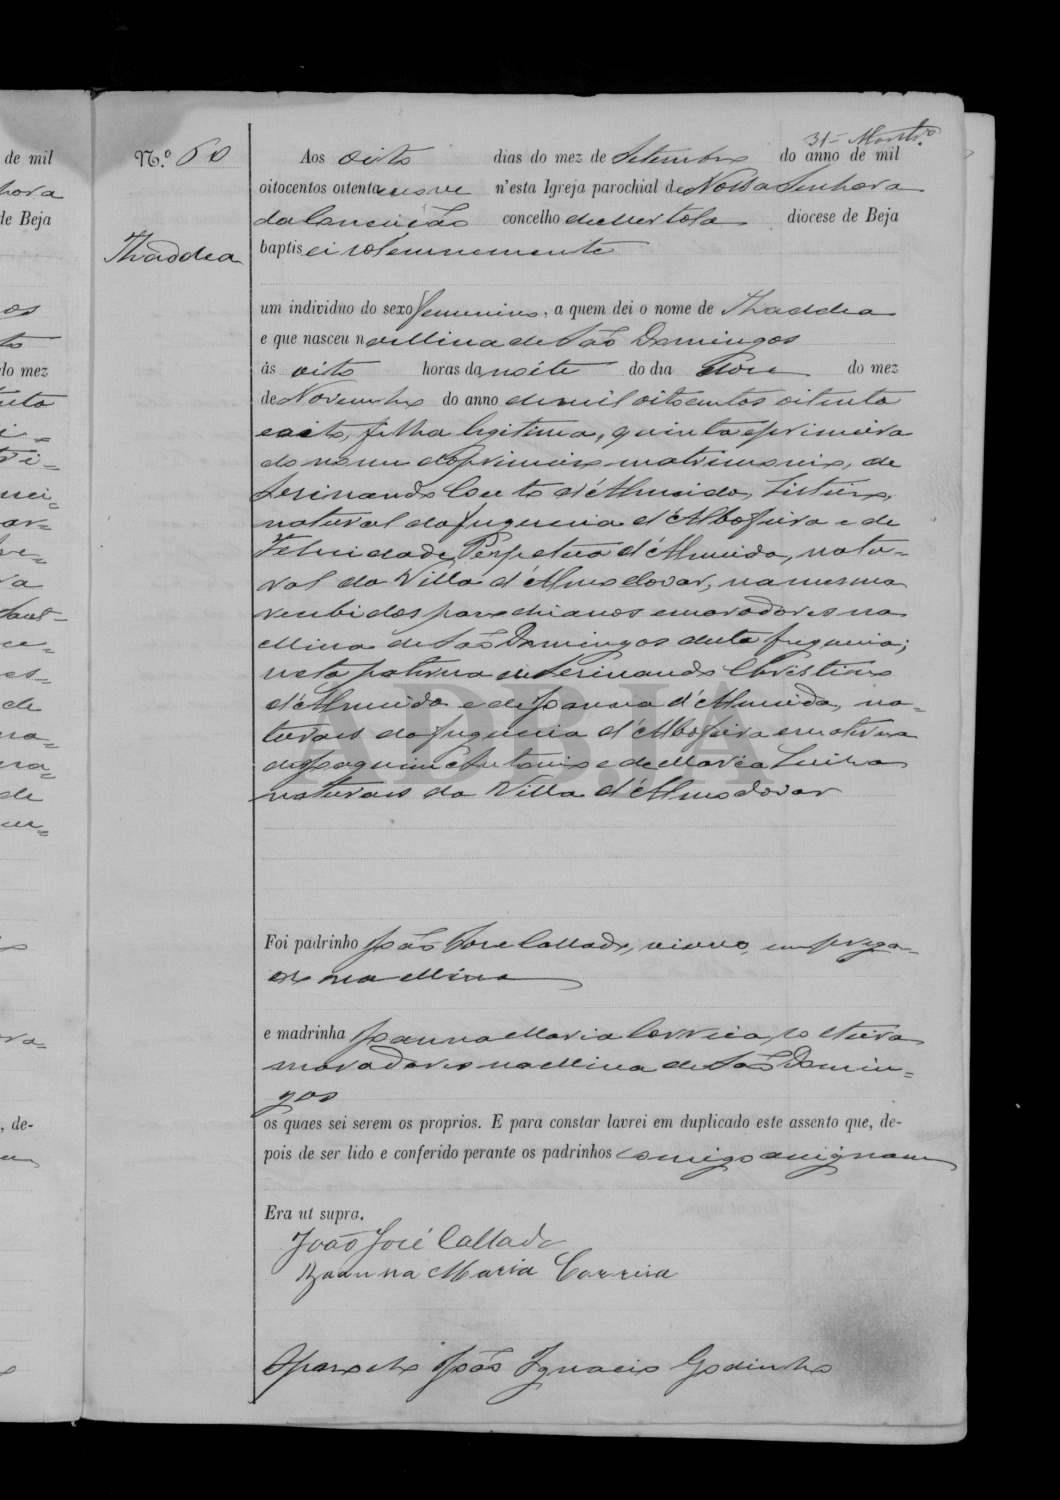 31- Montr.º
N.º 60
Aos oito dias do mez de Setembro do anno de mil
oitocentos oitenta e nove n'esta Igreja parochial de Nossa Senhora
da Conceição concelho de Mertola diocese de Beja
Thaddea
baptisei solemnemente
um individuo do sexo femenino, a quem dei o nome de Thaddea
e que nasceu na Mina de São Domingos
ás oito horas da noite do dia dôze do mez
de Novembro do anno de mil oitocentos oitenta
e oito, filha legitima, quinta e primeira
do nome do primeiro matrimonio, de
Serinando Couto d'Almeida,
natural da freguesia d'Albofeira e de
Felicidade Perpetua d'Almeida, natu-
ral da Villa d'Almodovar, na mesma
recebidos parochianos e moradores na
Mina de São Domingos desta freguesia;
neta paterna de Serinando Christino
d'Almeida e de Joanna d'Almeida, na-
turaes da freguesia d'Albofeira e materna
de Joaquim Antonio e de Maria Luiza
naturaes da Villa d'Almodovar
Foi padrinho João Jose Callado, viuvo, emprega-
do na Mina
e madrinha Joanna Maria Correia, solteira
moradores na Mina de São Domin-
gos
os quaes sei serem os proprios. E para constar lavrei em duplicado este assento que, de-
pois de ser lido e conferido perante os padrinhos comigo assignam
Era ut supra.
João José Callado
Joanna Maria Correia
O parocho João Ignacio Godinho
ADBJA